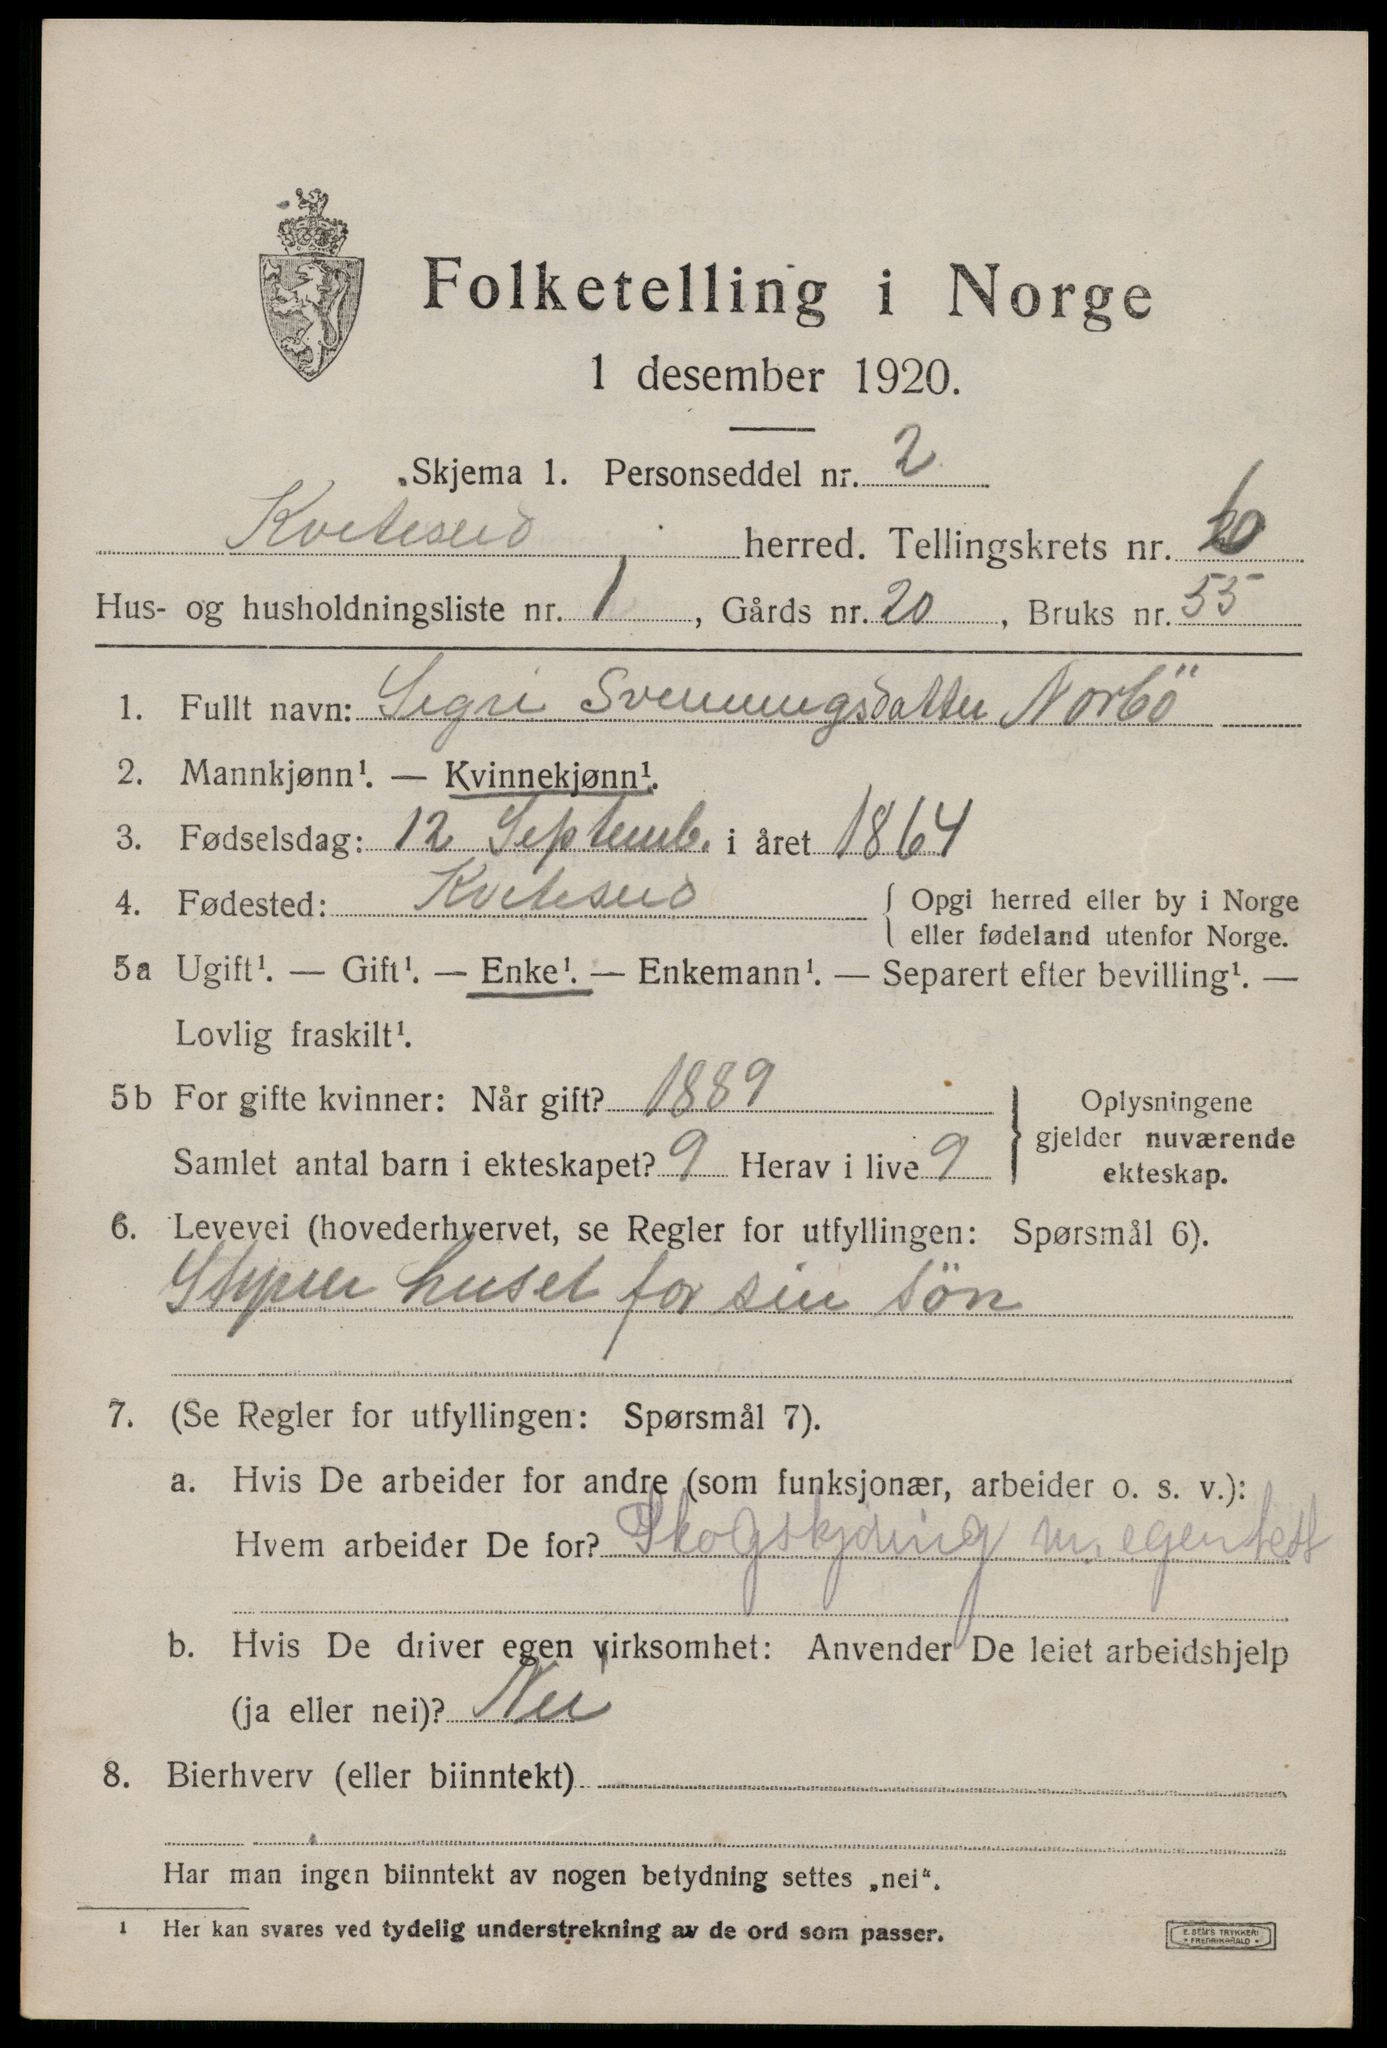 Folketelling i Norge
1 desember 1920.
Skjema 1. Personseddel nr. 2
Kviteseid herred. Tellingskrets nr.
Hus- og husholdningsliste nr. 1, Gårds nr. 20, Bruks nr. 55
1. Fullt navn: Segri Svenningsdatter Norbö
2. Mannkjønn¹. — Kvinnekjønn¹.
3. Fødselsdag: 12 Septemb. i året 1864
4. Fødested: Kviteseid { Opgi herred eller by i Norge
eller fødeland utenfor Norge.
5a Ugift¹. — Gift¹. — Enke¹. — Enkemann¹. — Separert efter bevilling¹. —
Lovlig fraskilt¹.
5b For gifte kvinner: Når gift? 1889
Samlet antal barn i ekteskapet? 9 Herav i live 9
} Oplysningene
gjelder nuværende
ekteskap.
6. Levevei (hovederhvervet, se Regler for utfyllingen: Spørsmål 6).
Styrer huset for sin sön
7. (Se Regler for utfyllingen: Spørsmål 7).
a. Hvis De arbeider for andre (som funksjonær, arbeider o. s. v.):
Hvem arbeider De for? Skogskjöring m. egen hest
b. Hvis De driver egen virksomhet: Anvender De leiet arbeidshjelp
(ja eller nei)? Nei
8. Bierhverv (eller biinntekt)
Har man ingen biinntekt av nogen betydning settes „nei“.
¹ Her kan svares ved tydelig understrekning av de ord som passer.
E. SEM'S TRYKKERI
• FREDRIKSHALD •